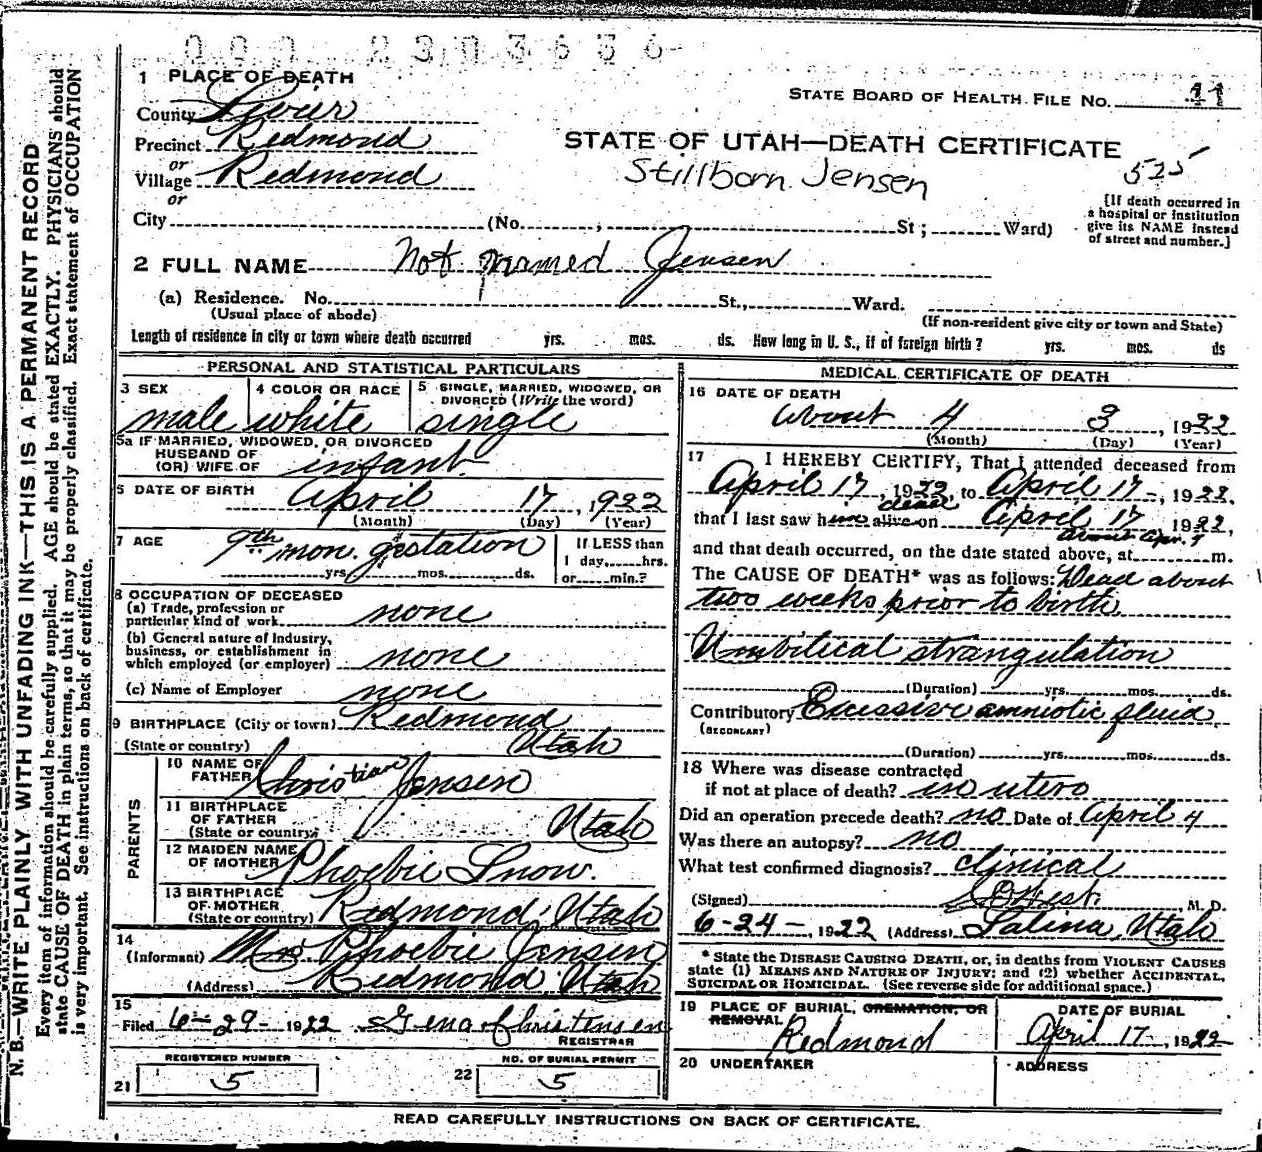 000 2303636
1 PLACE OF DEATH
STATE BOARD OF HEALTH FILE NO. 11
County Sevier
Precinct Redmond
STATE OF UTAH—DEATH CERTIFICATE
or
Village Redmond
Stillborn Jensen
525
or
[If death occurred in a hospital or institution give its NAME instead of street and number.]
City (No. , St ; Ward)
2 FULL NAME Not named Jensen
(a) Residence. No. St., Ward.
(Usual place of abode) (If non-resident give city or town and State)
Length of residence in city or town where death occurred yrs. mos. ds. How long in U. S., if of foreign birth ? yrs. mos. ds
PERSONAL AND STATISTICAL PARTICULARS
3 SEX male
4 COLOR OR RACE white
5 SINGLE, MARRIED, WIDOWED, OR DIVORCED (Write the word) single
5a IF MARRIED, WIDOWED, OR DIVORCED
HUSBAND OF
(OR) WIFE OF infant
6 DATE OF BIRTH April 17, 1922
(Month) (Day) (Year)
7 AGE 9th mon. gestation
yrs. mos. ds.
If LESS than
1 day, hrs.
or min.?
8 OCCUPATION OF DECEASED
(a) Trade, profession or
particular kind of work none
(b) General nature of industry,
business, or establishment in
which employed (or employer) none
(c) Name of Employer none
9 BIRTHPLACE (City or town) Redmond
(State or country) Utah
PARENTS
10 NAME OF
FATHER Christian Jensen
11 BIRTHPLACE
OF FATHER
(State or country) Utah
12 MAIDEN NAME
OF MOTHER Phoebie Snow.
13 BIRTHPLACE
OF MOTHER
(State or country) Redmond, Utah
14
(Informant) Mrs Phoebie Jensen
(Address) Redmond Utah
15
Filed 6-29- 1922 Gena Christensen
REGISTRAR
REGISTERED NUMBER
21 5
NO. OF BURIAL PERMIT
22 5
MEDICAL CERTIFICATE OF DEATH
16 DATE OF DEATH
about 4 3, 1922
(Month) (Day) (Year)
17 I HEREBY CERTIFY, That I attended deceased from
April 17, 1922, to April 17-, 1922.
dead
that I last saw him alive on April 17 1922,
about Apr. 4
and that death occurred, on the date stated above, at m.
The CAUSE OF DEATH* was as follows: Dead about
two weeks prior to birth
Umbilical strangulation
(Duration) yrs. mos. ds.
Contributory Excessive amniotic fluid
(SECONDARY)
(Duration) yrs. mos. ds.
18 Where was disease contracted
if not at place of death? in utero
Did an operation precede death? no Date of April 4
Was there an autopsy? no
What test confirmed diagnosis? clinical
(Signed) West M. D.
6-24-, 1922 (Address) Salina, Utah
* State the DISEASE CAUSING DEATH, or, in deaths from VIOLENT CAUSES
state (1) MEANS AND NATURE OF INJURY; and (2) whether ACCIDENTAL,
SUICIDAL OR HOMICIDAL. (See reverse side for additional space.)
19 PLACE OF BURIAL, CREMATION, OR
REMOVAL Redmond
DATE OF BURIAL
April 17-, 1922
20 UNDERTAKER
ADDRESS
READ CAREFULLY INSTRUCTIONS ON BACK OF CERTIFICATE.
N. B.—WRITE PLAINLY WITH UNFADING INK—THIS IS A PERMANENT RECORD
Every item of information should be carefully supplied. AGE should be stated EXACTLY. PHYSICIANS should
state CAUSE OF DEATH in plain terms, so that it may be properly classified. Exact statement of OCCUPATION
is very important. See instructions on back of certificate.